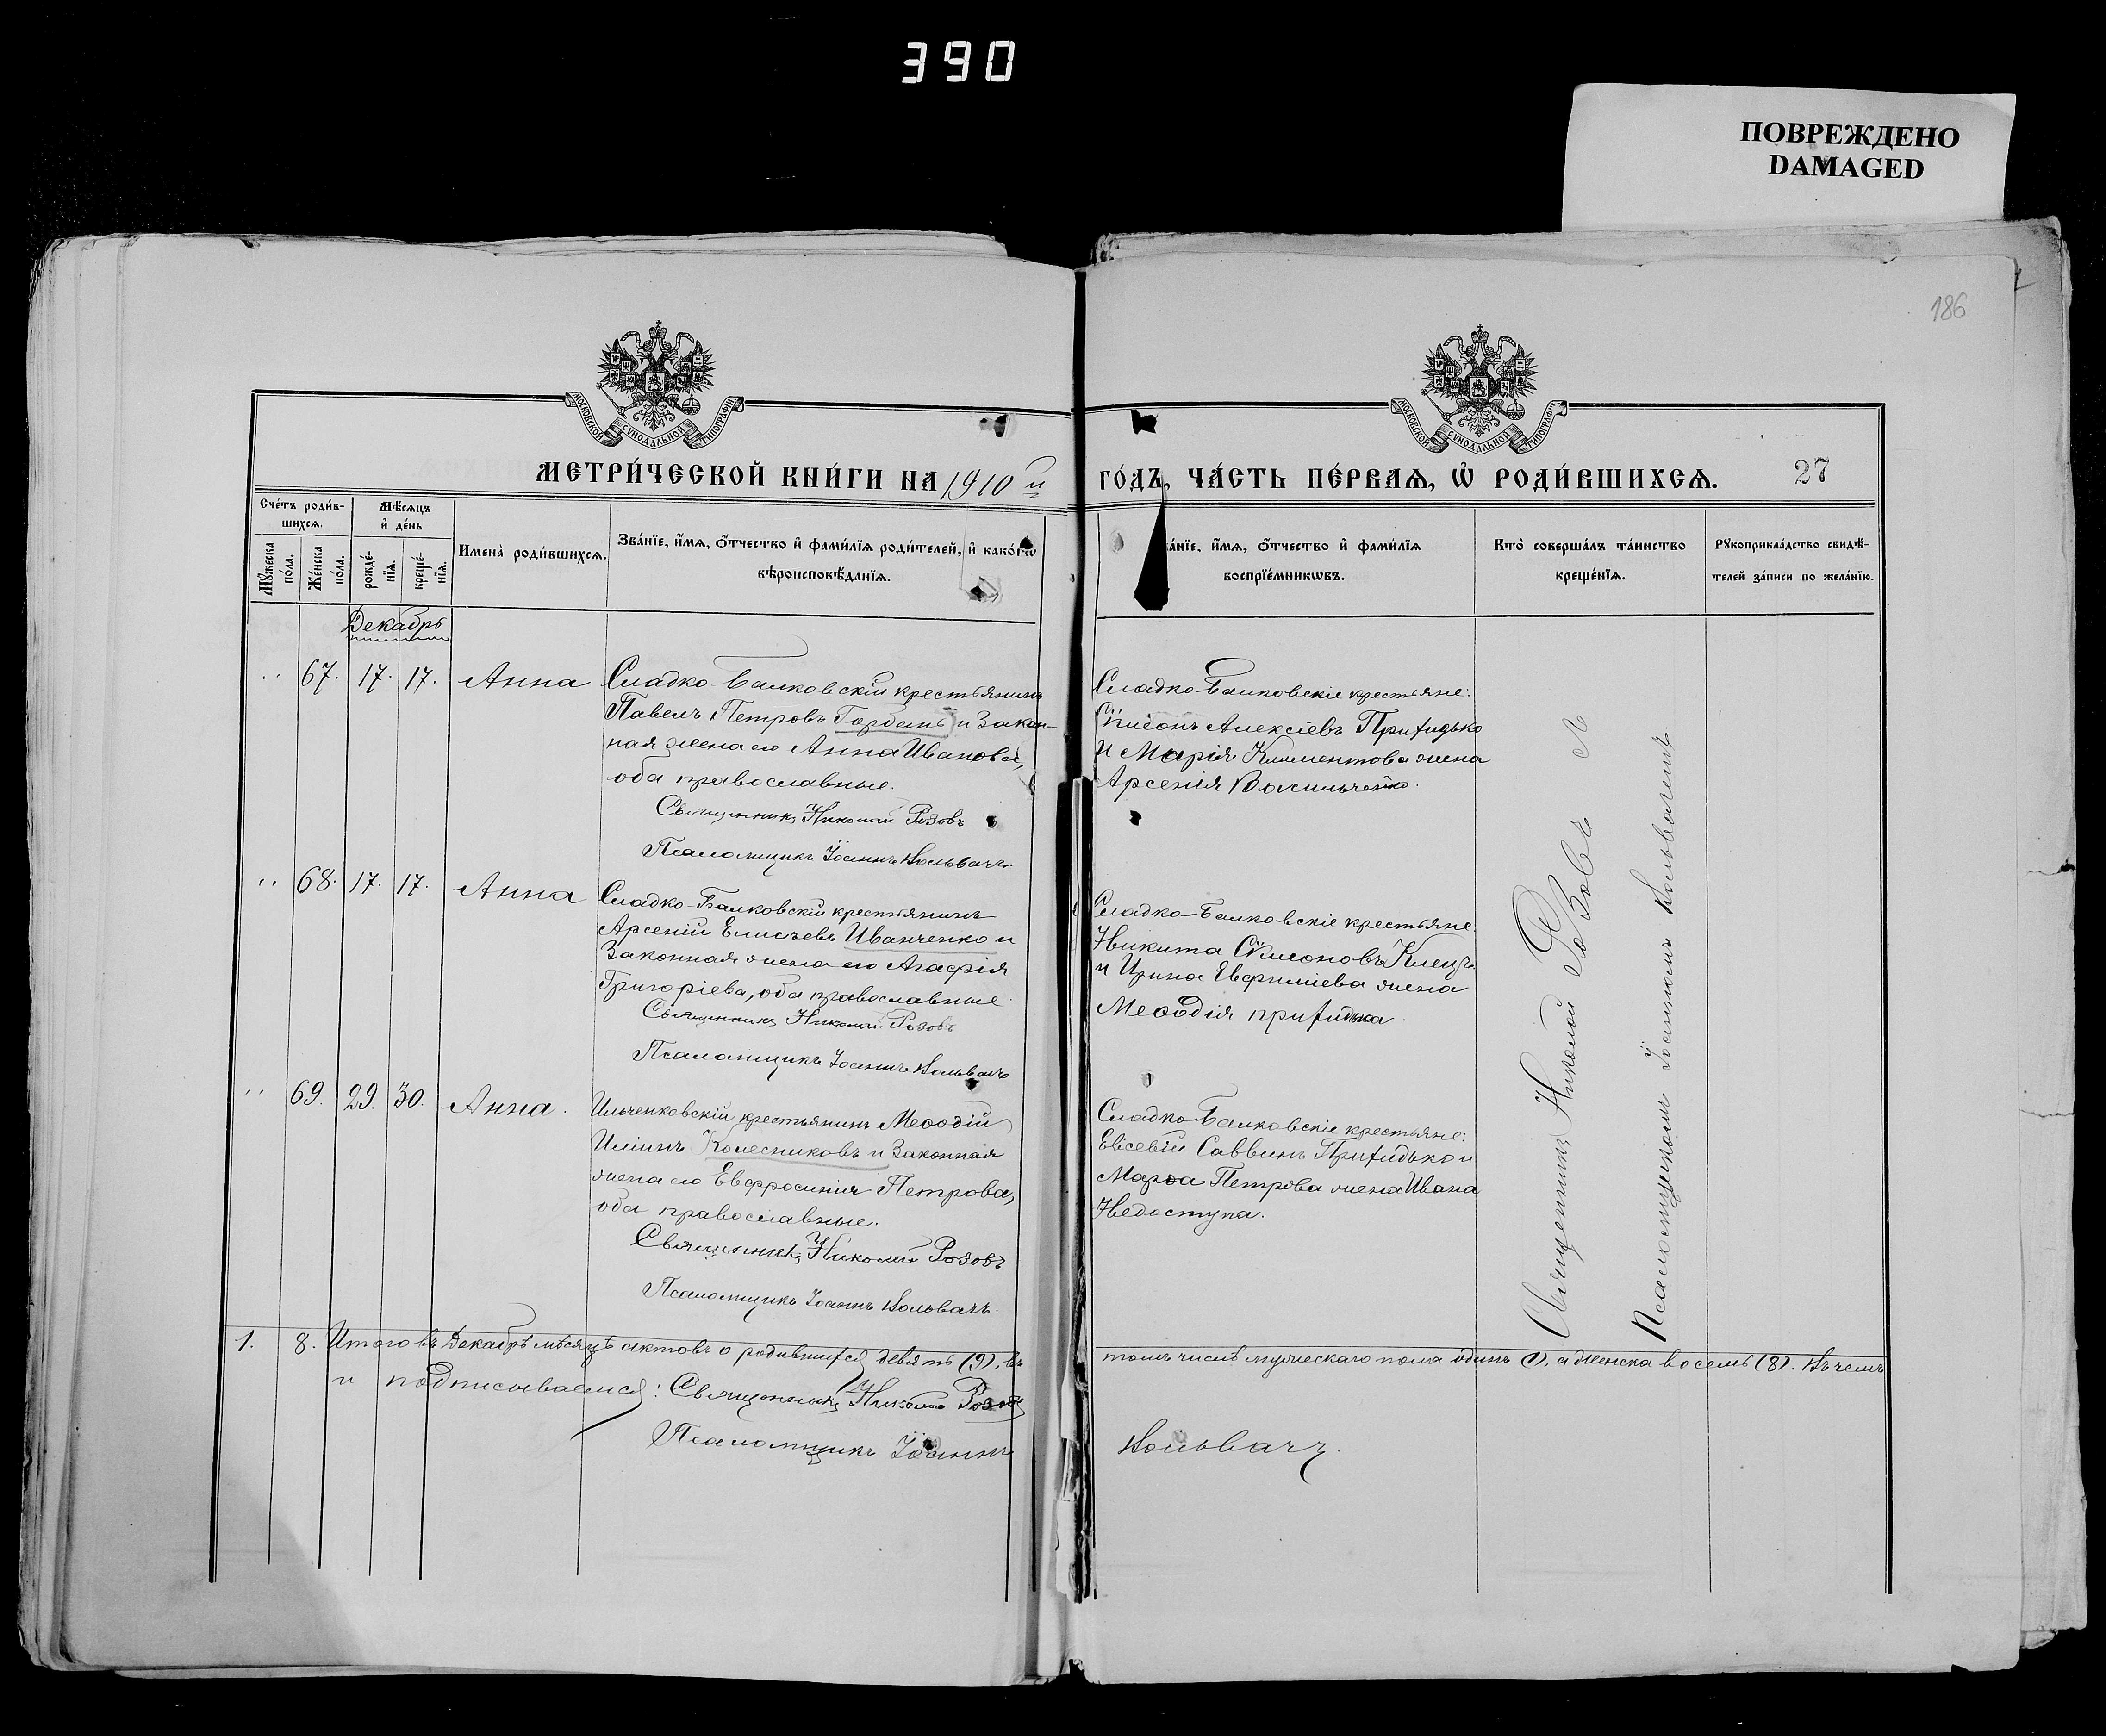 390
ПОВРЕЖДЕНО
DAMAGED
186
МОСКОВСКОЙ СѴНОДАЛЬНОЙ ТИПОГРАФІИ
МОСКОВСКОЙ СѴНОДАЛЬНОЙ ТИПОГРАФІИ
МЕТРИ́ЧЕСКОЙ КНИ́ГИ НА 1910 й
ГО́ДЪ, ЧА́СТЬ ПЕ́РВАѦ, Ѽ РОДИ́ВШИХСѦ. 27
Сче́тъ роди́в-
шихсѧ.
Мꙋжеска
по́ла.
Же́нска
по́ла.
Мѣ́сѧцъ
и҆ де́нь
рожде́-
нїѧ.
креще́-
нїѧ.
Имена̀ роди́вшихсѧ.
Зва́нїе, и҆́мѧ, ѻ҆́тчество и҆ фами́лїѧ роди́телей, и҆ како́гѡ
вѣроисповѣ́данїѧ.
ва́нїе, и҆́мѧ, ѻ҆́тчество и҆ фами́лїѧ
воспрїе́мникѡвъ.
Кто̀ соверша́лъ та́инство
креще́нїѧ.
Рꙋкоприкла́дство свидѣ́-
телей за́писи по жела́нїю.
Декабрь
67. 17. 17. Анна
Сладко-Балковскій крестьянинъ
Павелъ Петровъ Горбань и закон-
ная жена его Анна Иванова,
оба православные.
Священникъ Николай Розовъ
Псаломщикъ Іоаннъ Кольвахъ
Сладко-Балковскіе крестьяне:
Сѵмеонъ Алексіевъ Прихидько
и Марія Климентова жена
Арсенія Васильченко.
68. 17. 17. Анна
Сладко-Балковскій крестьянинъ
Арсеній Елисѣевъ Иванченко и
законная жена его Агафія
Григоріева, оба православные.
Священникъ Николай Розовъ
Псаломщикъ Іоаннъ Кольвахъ
Сладко-Балковскіе крестьяне:
Никита Сѵмеоновъ
и Ирина жена
Меѳодія Прихидька.
69. 29. 30. Анна.
Ильченковскій крестьянинъ Меѳодій
Иліинъ Колесниковъ и законная
жена его Евфросинія Петрова,
оба православные.
Священникъ Николай Розовъ
Псаломщикъ Іоаннъ Кольвахъ.
Сладко-Балковскіе крестьяне:
Евсевій Саввинъ Прихидько и
Марѳа Петрова жена Ивана
Недоступа.
Священникъ Николай Розовъ съ
Псаломщикомъ Іоанномъ Кольвахомъ
1. 8. Итого въ Декабрѣ мѣсяцѣ актовъ о родившихся девять (9), въ
томъ числѣ мужескаго пола одинъ (1), а женска восемь (8). Въ чемъ
и подписываемся: Священникъ Николай Розовъ
Псаломщикъ Іоаннъ
Кольвахъ.